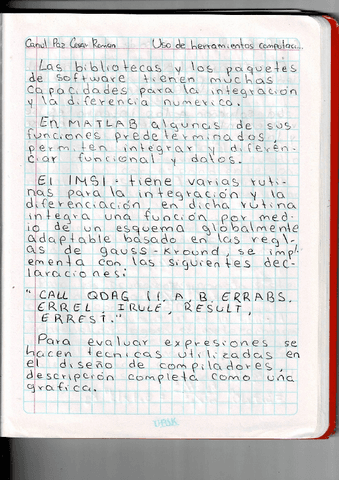 Canul Paz Cesar Roman Uso de herramientas computaci...
Las bibliotecas y los paquetes
de software tienen muchas
capacidades para la integración
y la diferencia numerica.
En MATLAB algunas de sus
funciones predeterminados,
permiten integrar y diferen-
ciar funcional y datos.
El IMSI - tiene varias ruti-
nas para la integración y la
diferenciación en dicha rutina
integra una función por med-
io de un esquema globalmente
adaptable basado en las regl-
as de gauss-Kround, se impl-
ementa con las siguientes dec-
laraciones:
"CALL QDAG (f, A, B, ERRABS,
ERREL IRULE, RESULT,
ERREST."
Para evaluar expresiones se
hacen tecnicas utilizadas en
el diseño de compiladores,
descripción completa como una
grafica.